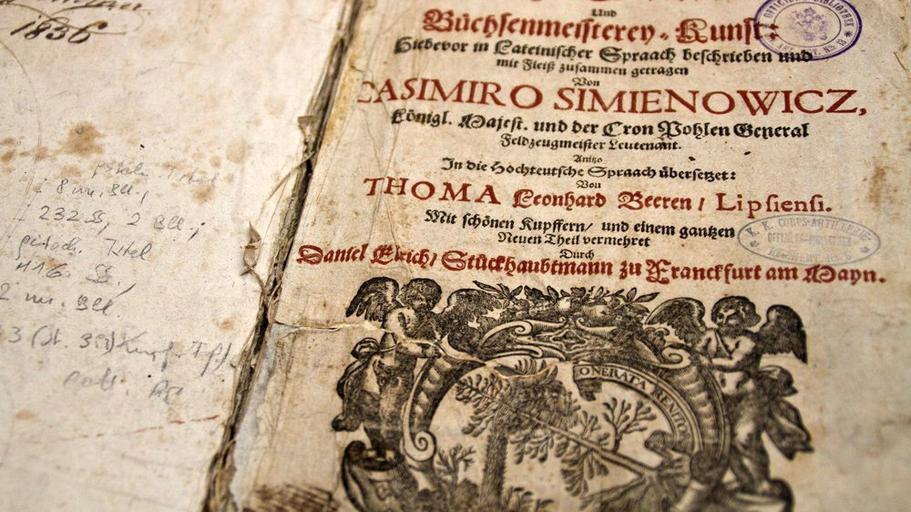 1836
8 nn. Bll.,
232 S., 2 Bll.;
Titel
416 S.
2 nn. Bll.
Und
Büchsenmeisterey-Kunst:
Hiebevor in Lateinischer Spraach beschrieben und
mit Fleiß zusammen getragen
Von
CASIMIRO SIMIENOWICZ,
Königl. Majest. und der Cron Pohlen General
Feldzeugmeister Leutenant.
Anitzo
In die Hochteutsche Spraach übersetzet:
Von
THOMA Leonhard Beeren / Lipsiensi.
Mit schönen Kupffern / und einem gantzen
Neuen Theil vermehret
Durch
Daniel Elrich / Stückhaubtmann zu Franckfurt am Mayn.
K. K. CORPS-ARTILLERIE
ONERATA RENITOR